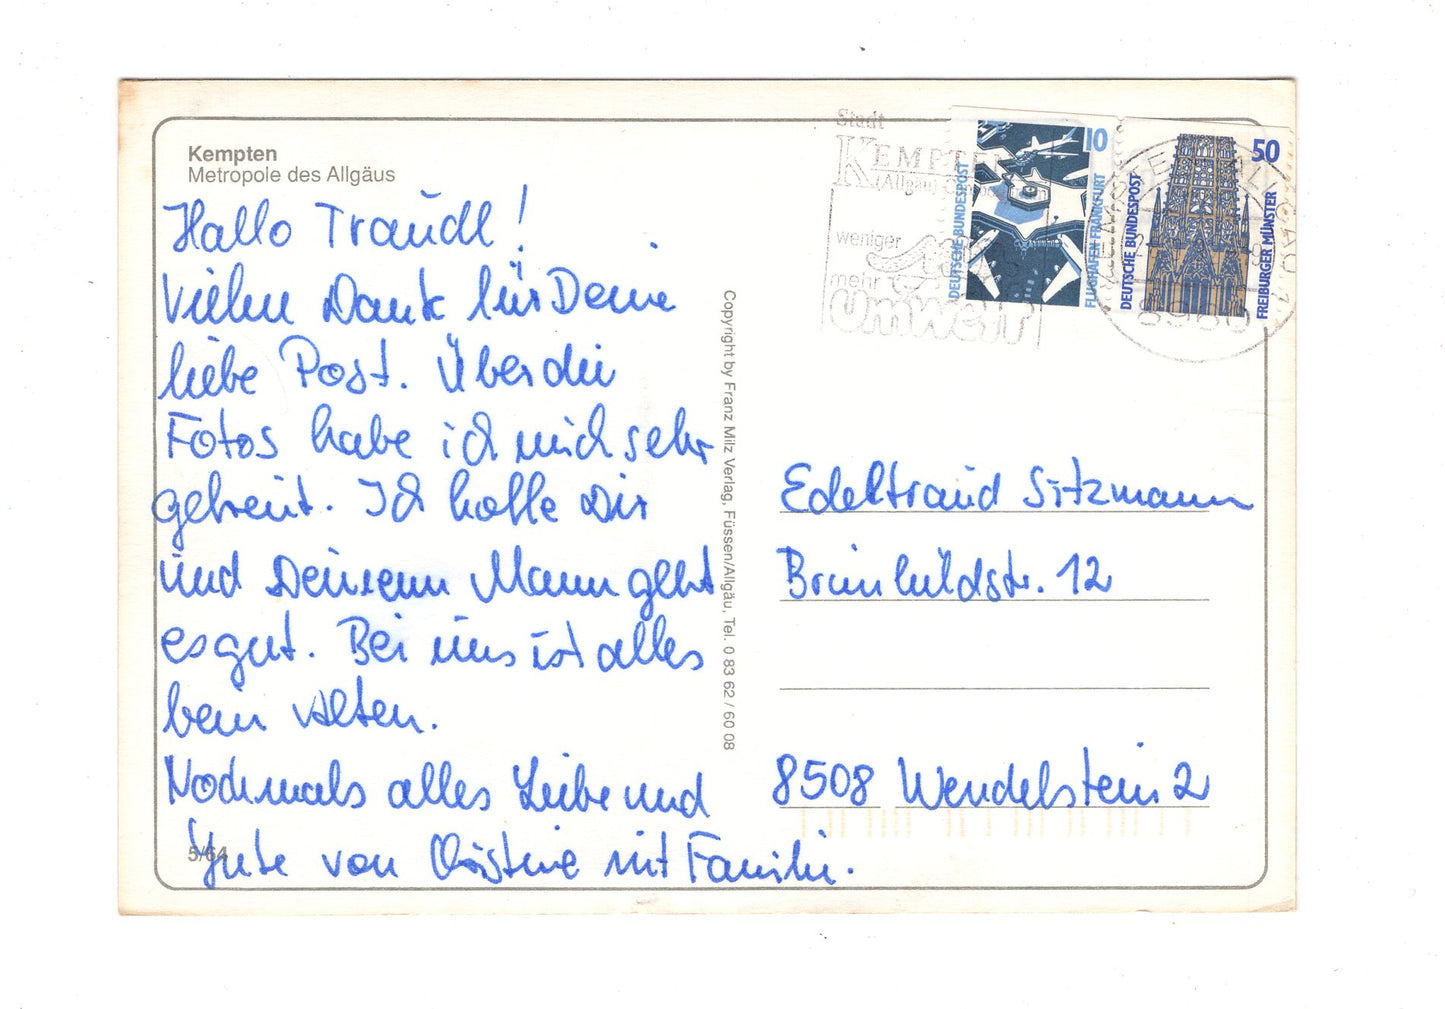 Kempten
Metropole des Allgäus
Hallo Traudl!
Vielen Dank für Deine
liebe Post. Über die
Fotos habe ich mich sehr
gefreut. Ich hoffe Dir
und Deinem Mann geht
es gut. Bei uns ist alles
beim Alten.
Nochmals alles Liebe und
Gute von Christine mit Familie.
5/64
Copyright by Franz Milz Verlag, Füssen/Allgäu, Tel. 0 83 62 / 60 08
Stadt
KEMPTEN
(Allgäu)
weniger
mehr
Umwelt
DEUTSCHE BUNDESPOST
10
FLUGHAFEN FRANKFURT
DEUTSCHE BUNDESPOST
50
FREIBURGER MÜNSTER
Edeltraud Sitzmann
Brünhildstr. 12
8508 Wendelstein 2